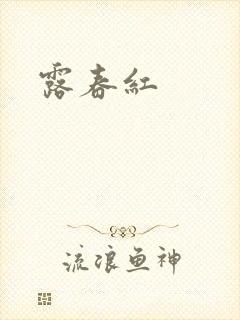 露春紅
流浪鱼神